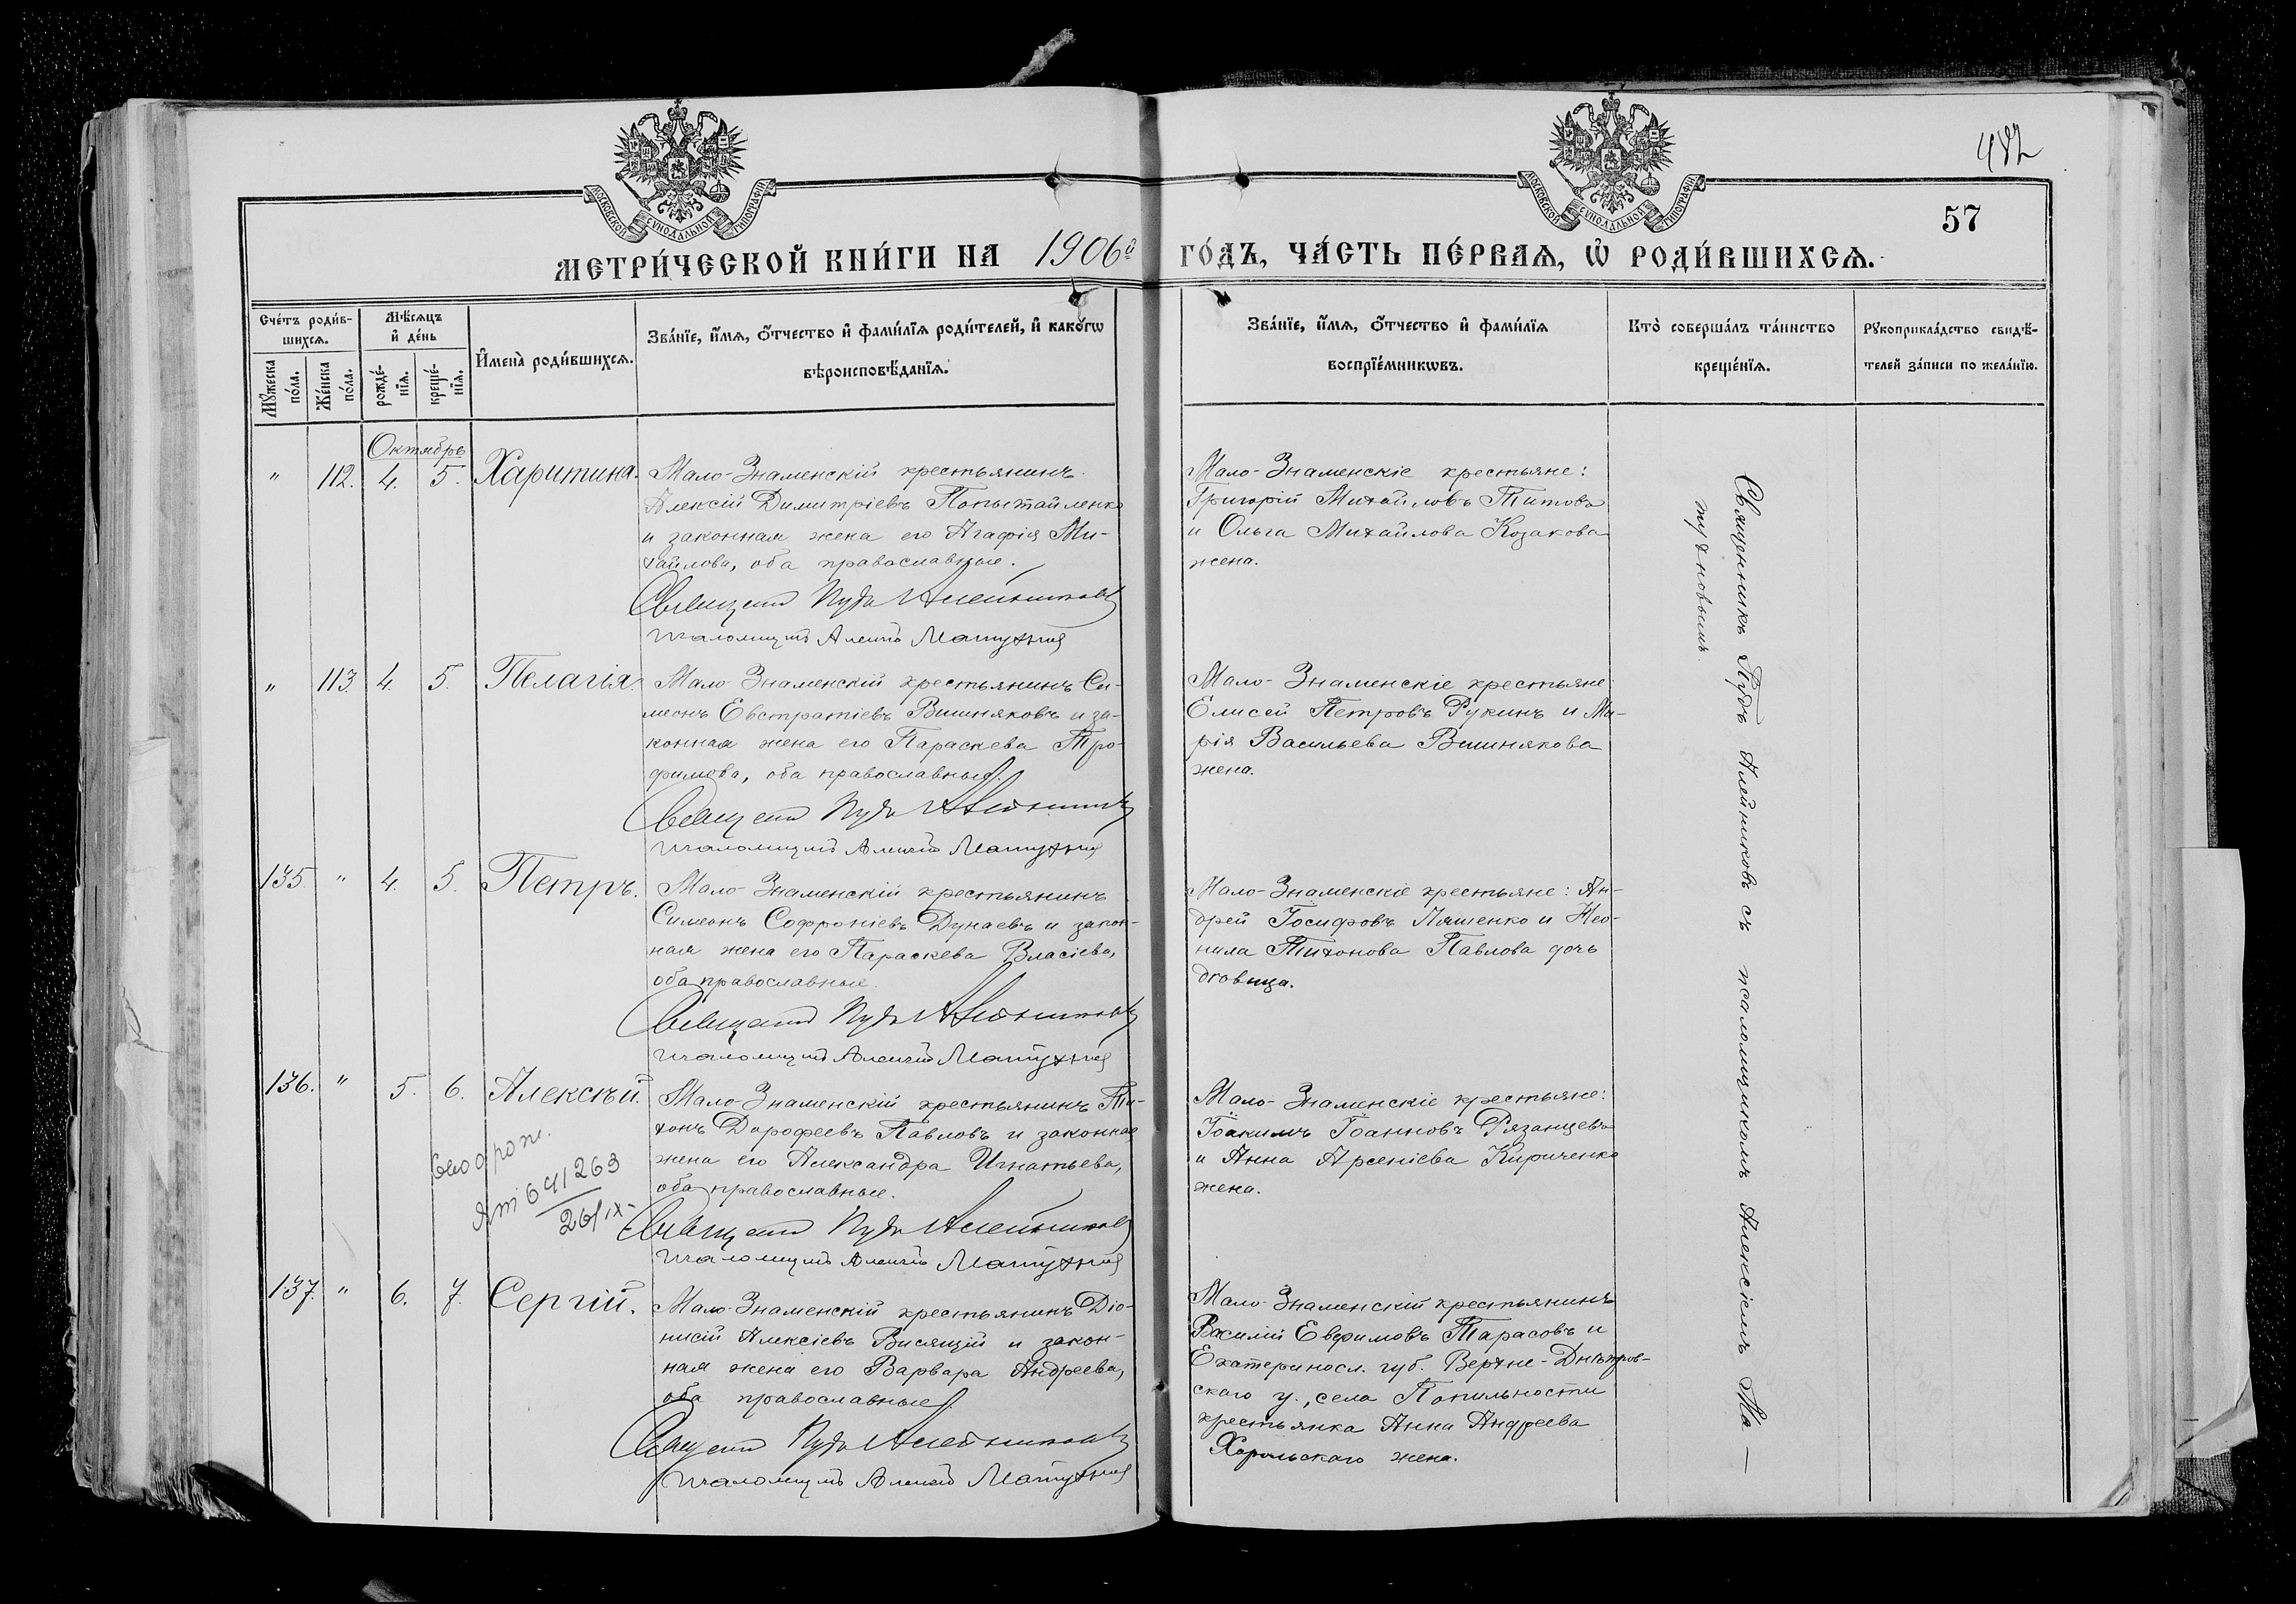 МОСКОВСКОЙ СѴНОДАЛЬНОЙ ТИПОГРАФІИ
МОСКОВСКОЙ СѴНОДАЛЬНОЙ ТИПОГРАФІИ
482
57
МЕТРИ́ЧЕСКОЙ КНИ́ГИ НА 1906й ГО́ДЪ, ЧА́СТЬ ПЕ́РВАѦ, Ѡ҆ РОДИ́ВШИХСѦ.
Сче́тъ роди́в-
шихсѧ.
Мꙋжеска по́ла.
Же́нска по́ла.
Мѣ́сѧцъ
и҆ де́нь
рожде́-
нїѧ.
креще́-
нїѧ.
И҆мена̀ роди́вшихсѧ.
Зва́нїе, и҆́мѧ, ѻ҆́тчество и҆ фами́лїѧ роди́телей, и҆ како́гѡ
вѣроисповѣ́данїѧ.
Зва́нїе, и҆́мѧ, ѻ҆́тчество и҆ фами́лїѧ
воспрїе́мникѡвъ.
Кто̀ соверша́лъ та́инство
креще́нїѧ.
Рꙋкоприкла́дство свидѣ́-
телей за́писи по жела́нїю.
Октябрь
" 112. 4. 5. Харитина.
Мало-Знаменскій крестьянинъ
Алексій Димитріевъ Попытайленко
и законная жена его Агафія Ми-
хайлова, оба православные.
Священ Пудъ Алейниковъ
Псаломщикъ Алексій Матухновъ
Мало-Знаменскіе крестьяне:
Григорій Михайловъ Титовъ
и Ольга Михайлова Козакова
жена.
" 113. 4. 5. Пелагія.
Мало-Знаменскій крестьянинъ Си-
меонъ Евстратіевъ Вишняковъ и за-
конная жена его Параскева Тро-
фимова, оба православные.
Священ Пудъ Алейниковъ
Псаломщикъ Алексій Матухновъ
Мало-Знаменскіе крестьяне
Елисей Петровъ Рукинъ и Ма-
рія Васильева Вишнякова
жена.
135. " 4. 5. Петръ.
Мало-Знаменскій крестьянинъ
Симеонъ Софроніевъ Дунаевъ и закон-
ная жена его Параскева Власіева,
оба православные.
Священ Пудъ Алейниковъ
Псаломщикъ Алексій Матухновъ
Мало-Знаменскіе крестьяне: Ан-
дрей Іосифовъ Ляшенко и Нео-
нила Тихонова Павлова дочь
дѣвица.
136. " 5. 6. Алексѣй.
641263
26/IX-
Мало-Знаменскій крестьянинъ Ти-
хонъ Дорофеевъ Павловъ и законная
жена его Александра Игнатьева,
оба православные.
Священ Пудъ Алейниковъ
Псаломщикъ Алексій Матухновъ
Мало-Знаменскіе крестьяне:
Іоакимъ Іоанновъ Рязанцевъ
и Анна Арсеніева Кириченко
жена.
137. " 6. 7. Сергій.
Мало-Знаменскій крестьянинъ Діо-
нисій Алексіевъ Висящій и закон-
ная жена его Варвара Андреева,
оба православные.
Священ Пудъ Алейниковъ
Псаломщикъ Алексій Матухновъ
Мало-Знаменскій крестьянинъ
Василій Евфимовъ Тарасовъ и
Екатеринosл. губ. Верхне-Днѣпров-
скаго у., села
крестьянка Анна Андреева
Хорольскаго жена.
Священникъ Пудъ Алейниковъ съ псаломщикомъ Алексіемъ Ма-
тухновымъ.